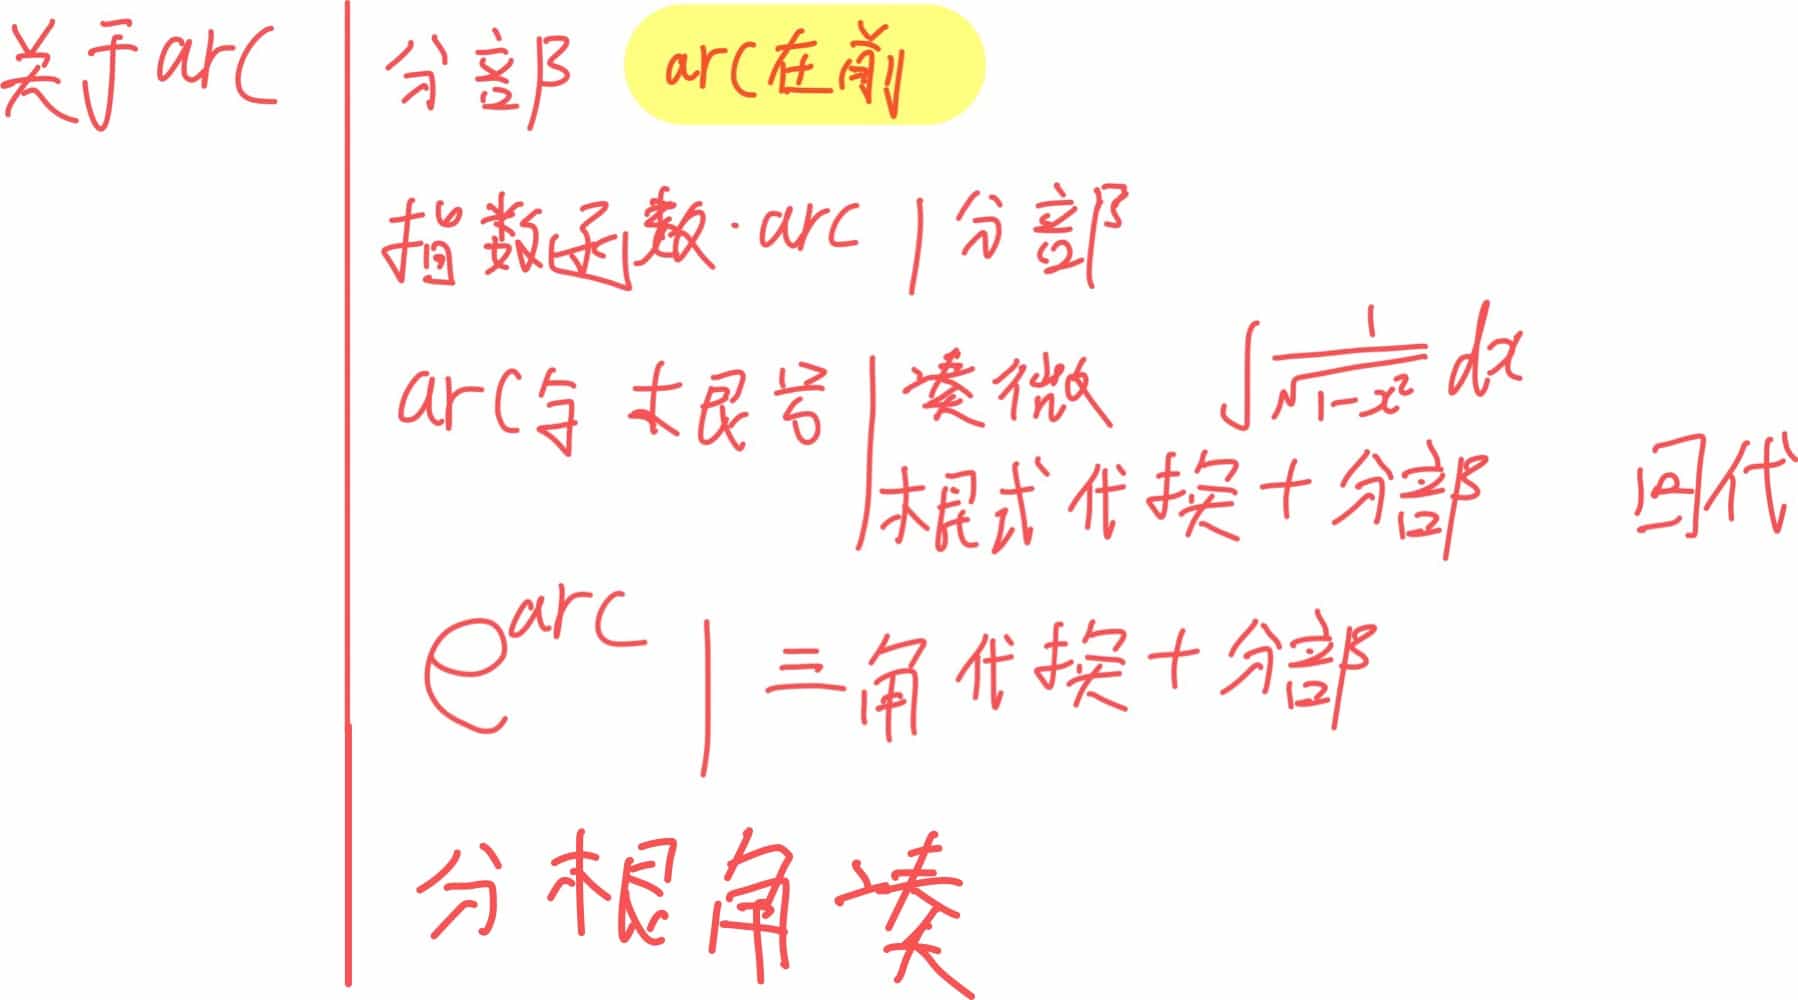 关于arc
分部 arc在前
指数函数·arc | 分部
arc与根号 | 凑微 ∫ 1/√(1-x²) dx
根式代换+分部 回代
e^arc | 三角代换+分部
分根角凑